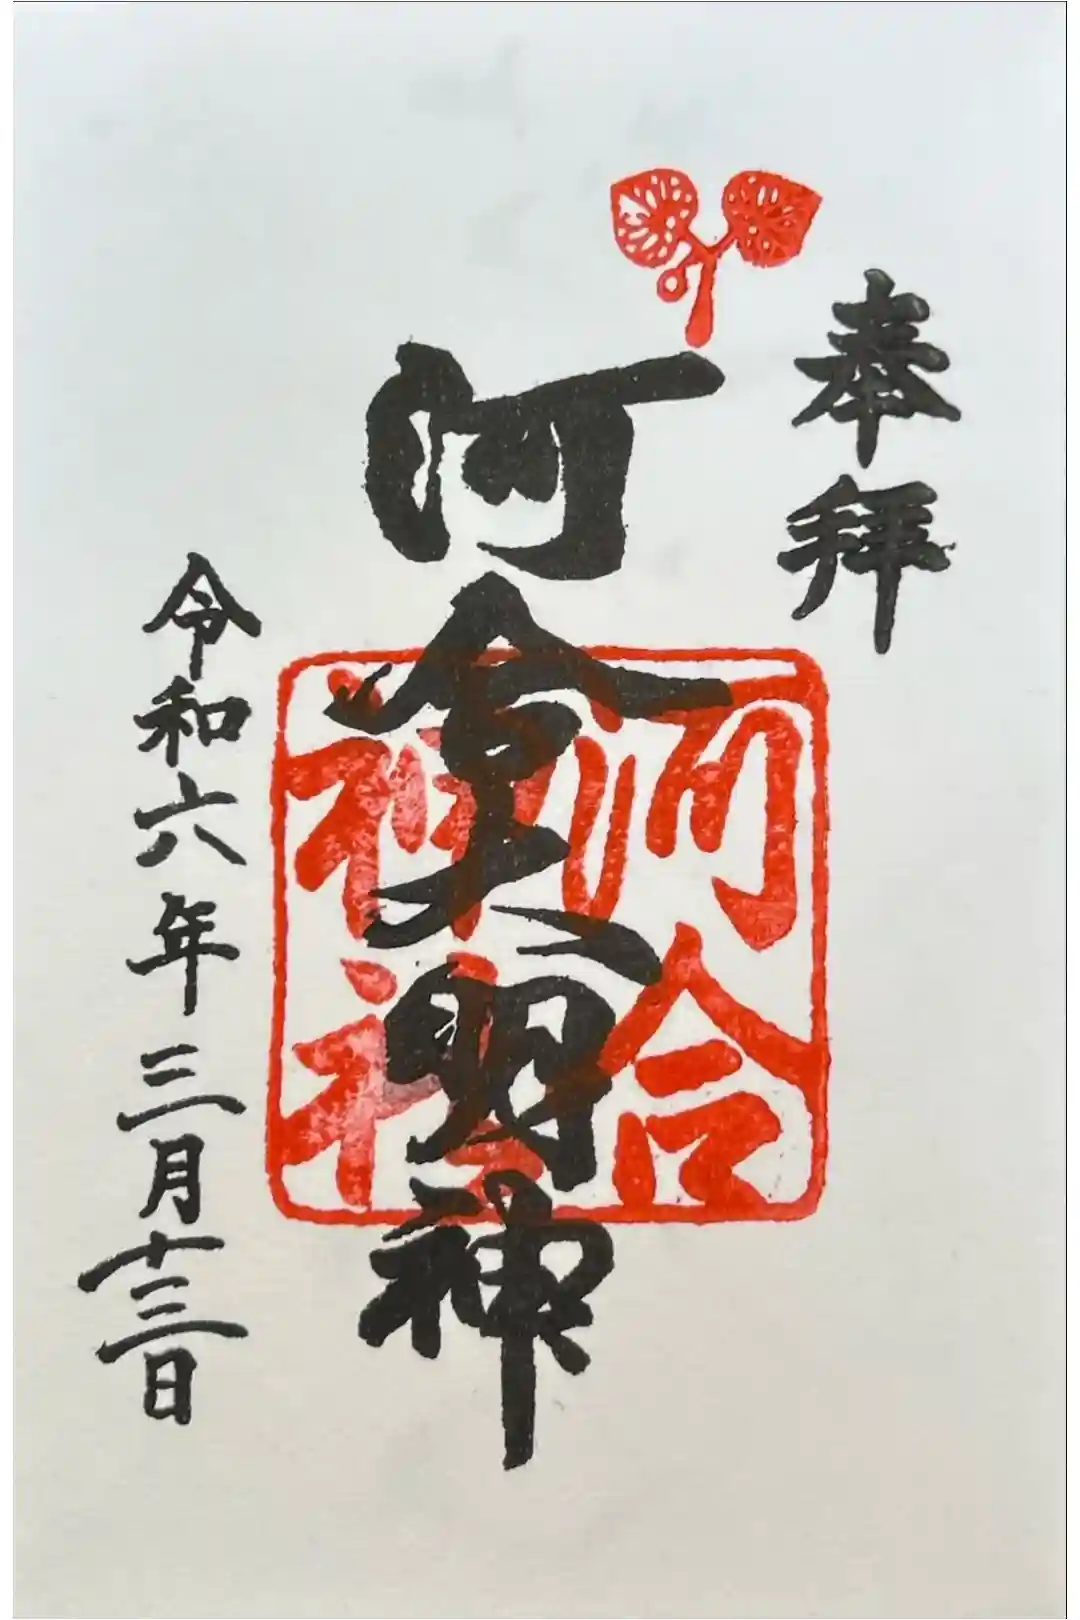 奉拝
河合大明神
河合
神社
令和六年三月十三日